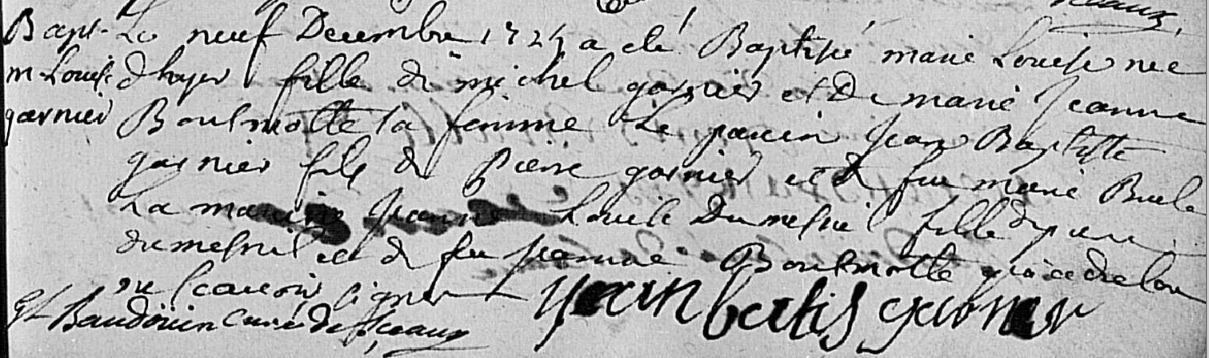 Bapt. Le neuf Decembre 1725 a été Baptisé marie Louise née
m. Louise d'hyer fille de michel garnier et De marie Jeanne
garnier Boulmotte sa femme Le parein Jean Baptiste
garnier fils de Pierre garnier et de fue marie Buela
La mareine Jeanne Louise Dumesnil fille de pierre
dumesnil et de fue Jeanne Boulmotte qui a declaré
ne scavoir signer jean batis garnier
Baudouin curé de Sceaux